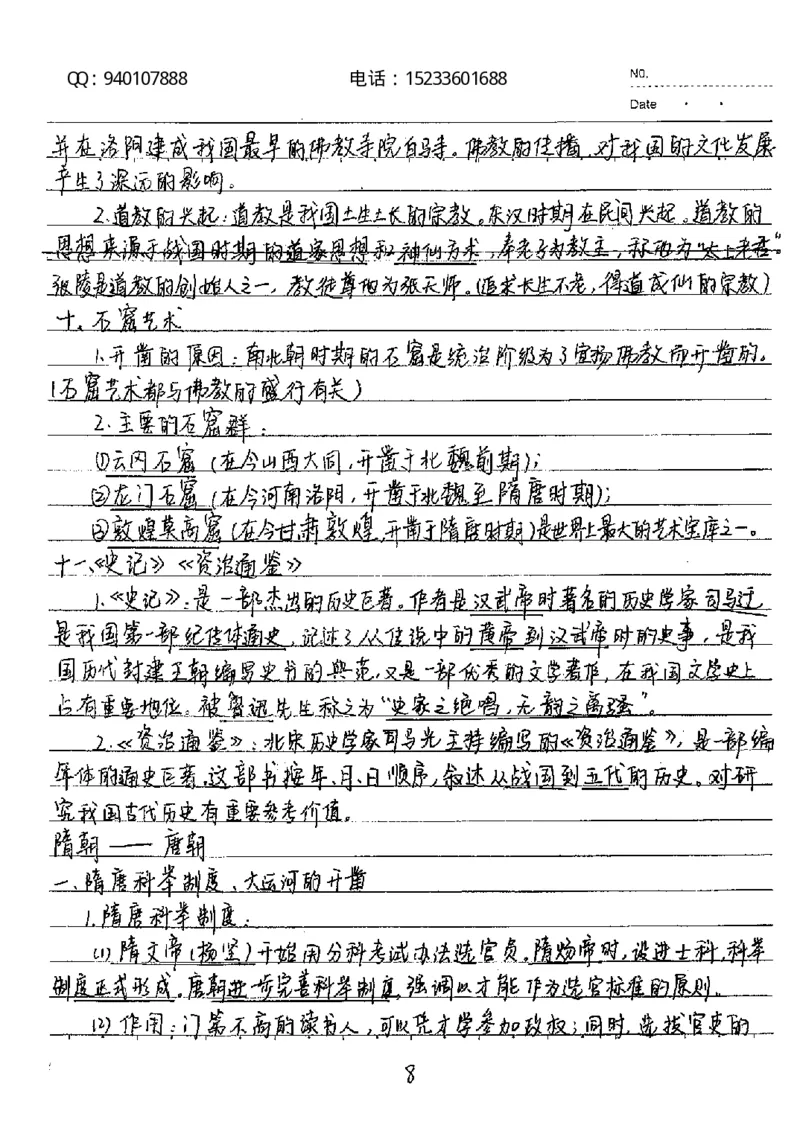 QQ：940107888 电话：15233601688 No.
Date · ·
并在洛阳建成我国最早的佛教寺院白马寺。佛教的传播，对我国的文化发展
产生了深远的影响。
2.道教的兴起：道教是我国土生土长的宗教。东汉时期在民间兴起。道教的
思想来源于战国时期的道家思想和神仙方术，奉老子为教主，称他为“太上老君”。
张陵是道教的创始人之一，教徒尊他为张天师。（追求长生不老，得道成仙的宗教）
十。石窟艺术
1.开凿的原因：南北朝时期的石窟是统治阶级为了宣扬佛教而开凿的。
（石窟艺术都与佛教的盛行有关）
2.主要的石窟群：
①云冈石窟（在今山西大同，开凿于北魏前期）；
②龙门石窟（在今河南洛阳，开凿于北魏至隋唐时期）；
③敦煌莫高窟（在今甘肃敦煌，开凿于隋唐时期）是世界上最大的艺术宝库之一。
十一、《史记》《资治通鉴》
1.《史记》：是一部杰出的历史巨著。作者是汉武帝时著名的历史学家司马迁，
是我国第一部纪传体通史，记述了从传说中的黄帝到汉武帝时的史事，是我
国历代封建王朝编写史书的典范，又是一部优秀的文学著作，在我国文学史上
占有重要地位。被鲁迅先生称之为“史家之绝唱，无韵之离骚”。
2.《资治通鉴》：北宋历史学家司马光主持编写的《资治通鉴》，是一部编
年体的通史巨著。这部书按年、月、日顺序，叙述从战国到五代的历史。对研
究我国古代历史有重要参考价值。
隋朝——唐朝
一、隋唐科举制度、大运河的开凿
1.隋唐科举制度：
(1)隋文帝（杨坚）开始用分科考试办法选官员。隋炀帝时，设进士科，科举
制度正式形成。唐朝进一步完善科举制度，强调以才能作为选官标准的原则。
(2)作用：门第不高的读书人，可以凭才学参加政权；同时，选拔官吏的
8